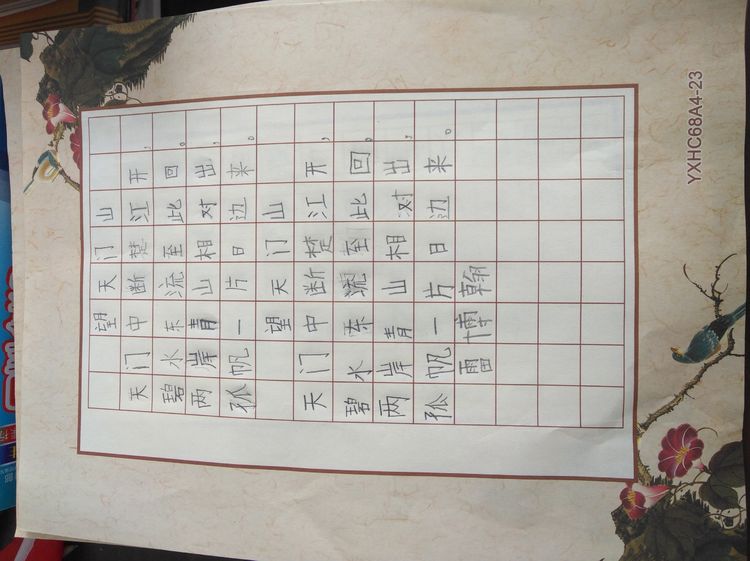 望天门山
天门中断楚江开,
碧水东流至此回。
两岸青山相对出,
孤帆一片日边来。
望天门山
天门中断楚江开,
碧水东流至此回。
两岸青山相对出,
孤帆一片日边来。
雷博翰
YXHC68A4-23